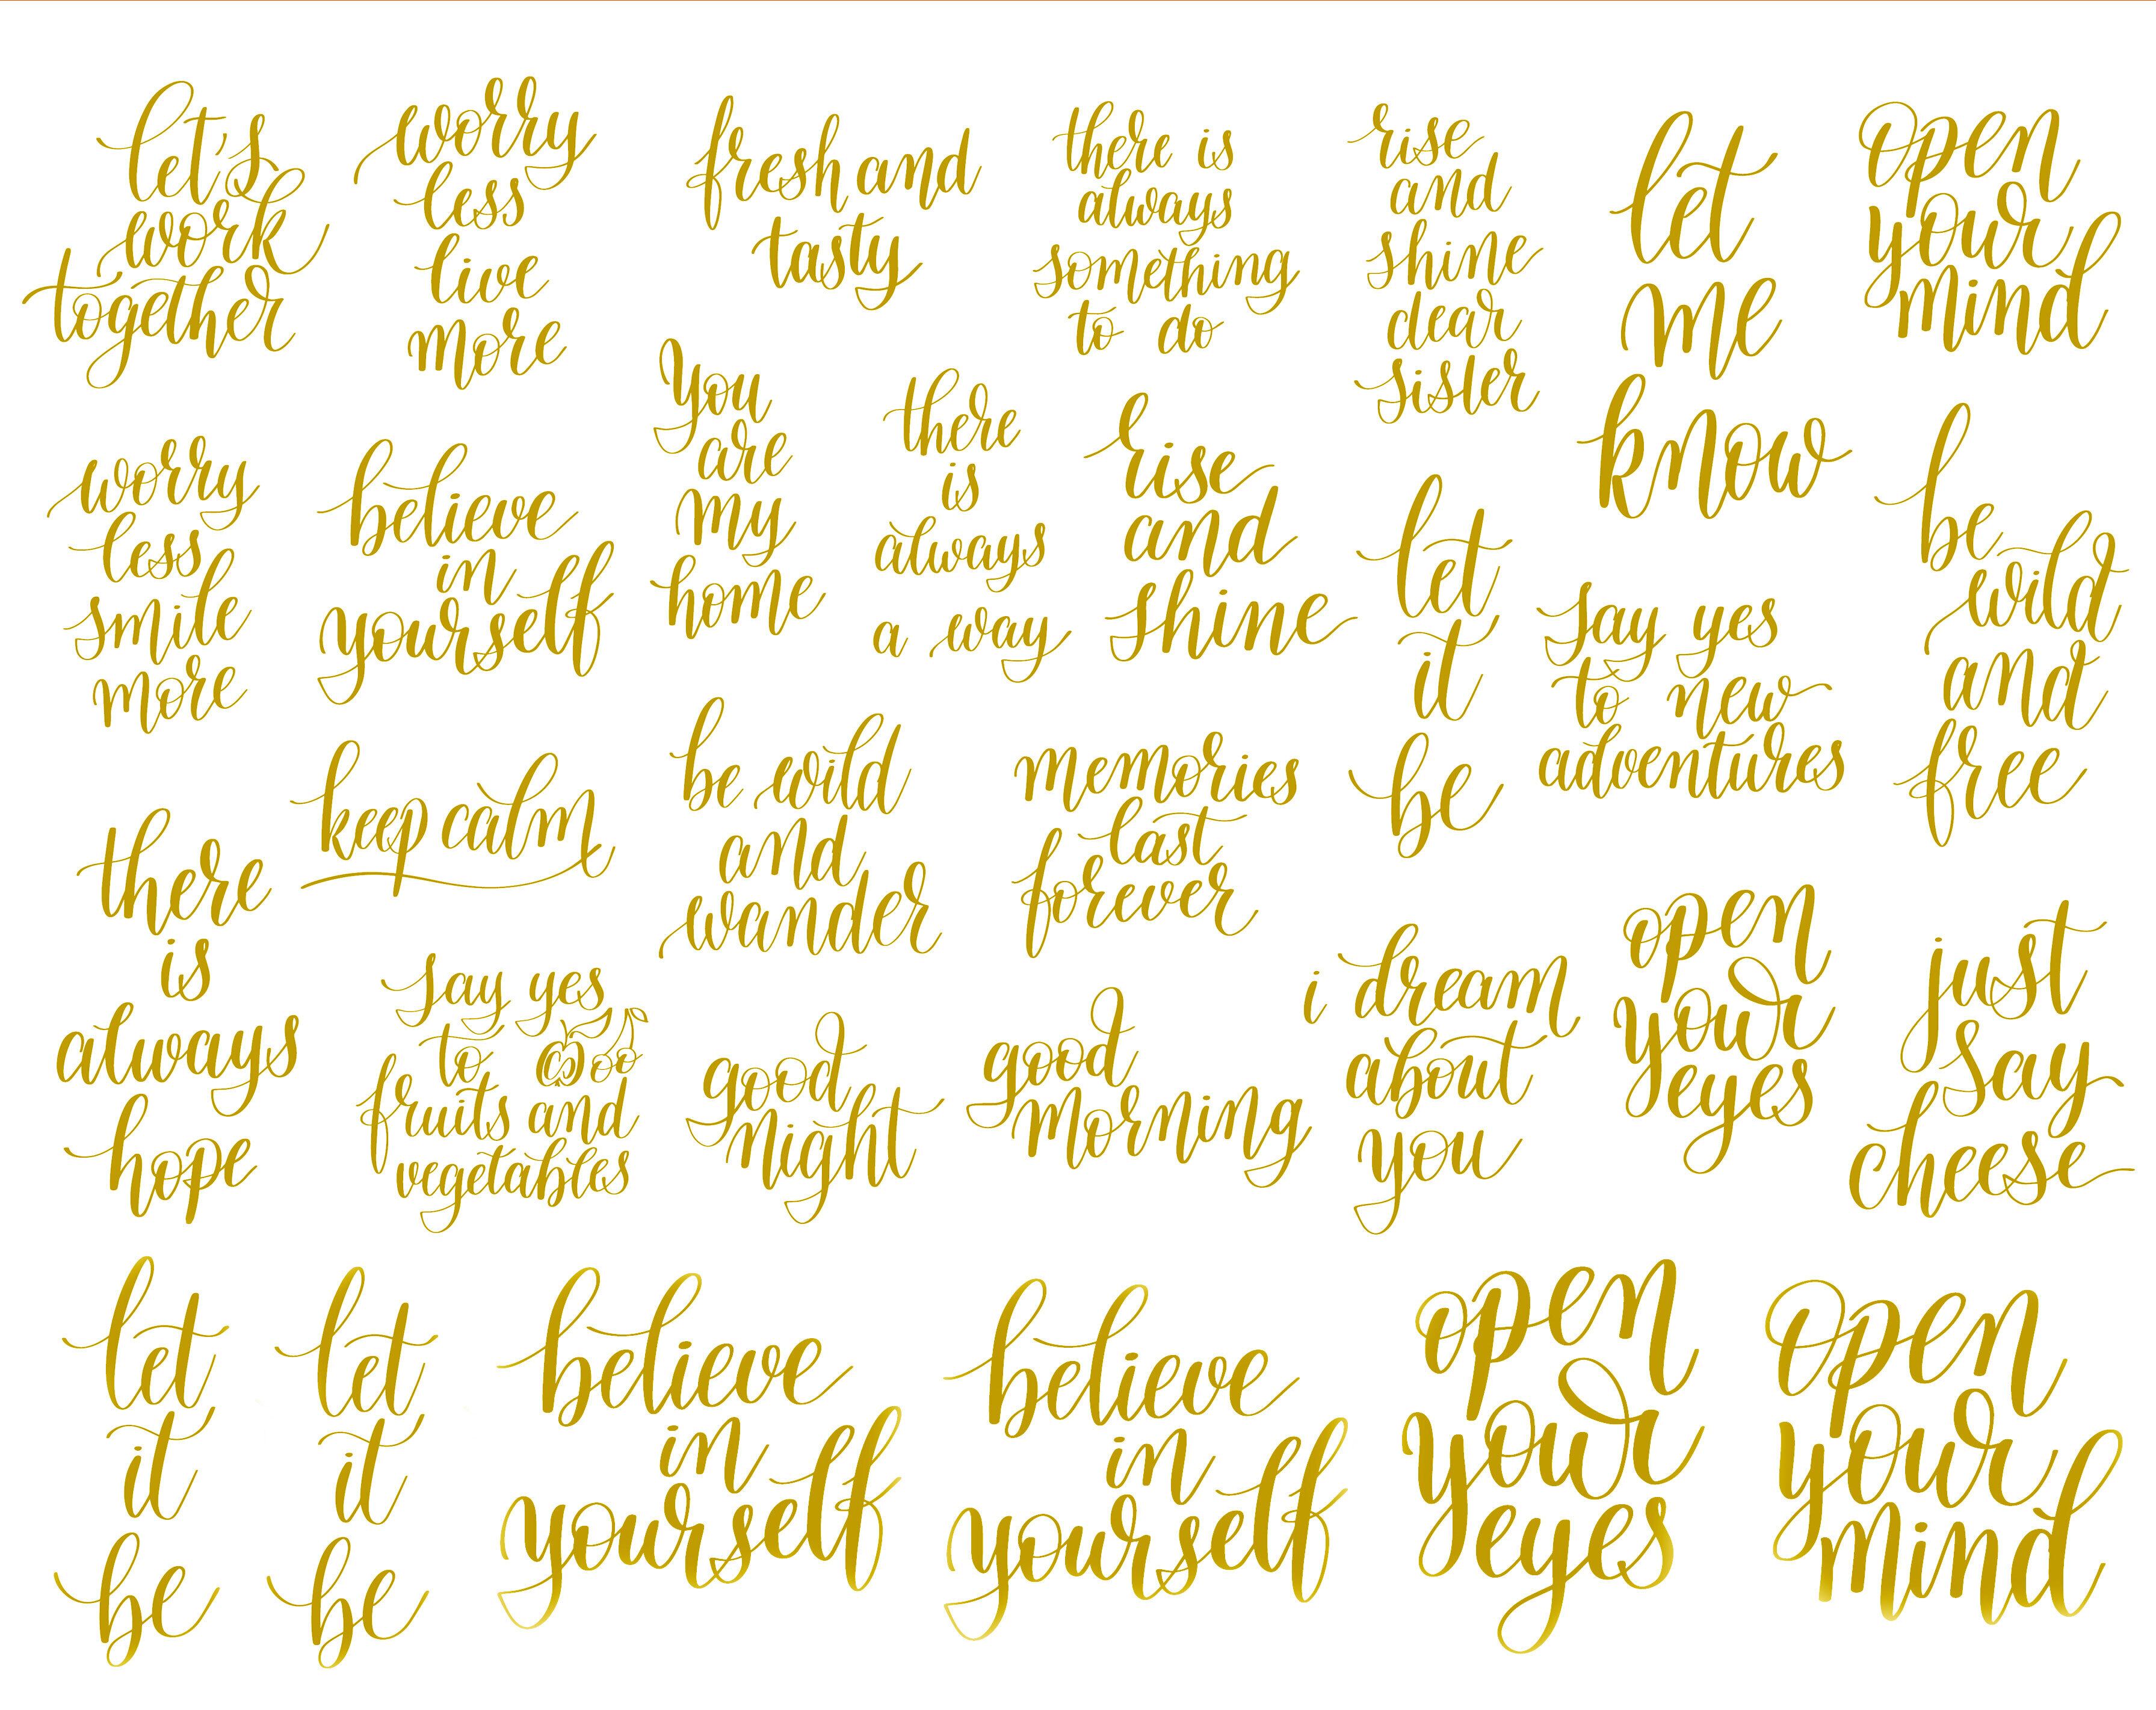 let's
work
together
worry
less
live
more
fresh and
tasty
there is
always
something
to do
rise
and
shine
clear
sister
let
me
know
open
your
mind
worry
less
smile
more
believe
in
yourself
you
are
my
home
there
is
always
a way
rise
and
shine
let
it
be
say yes
to new
adventures
be
wild
and
free
there
is
always
hope
keep calm
be wild
and
wander
memories
last
forever
say yes
to
fruits and
vegetables
good
night
good
morning
i dream
about
you
open
your
eyes
just
say
cheese
let
it
be
let
it
be
believe
in
yourself
believe
in
yourself
open
your
eyes
open
your
mind